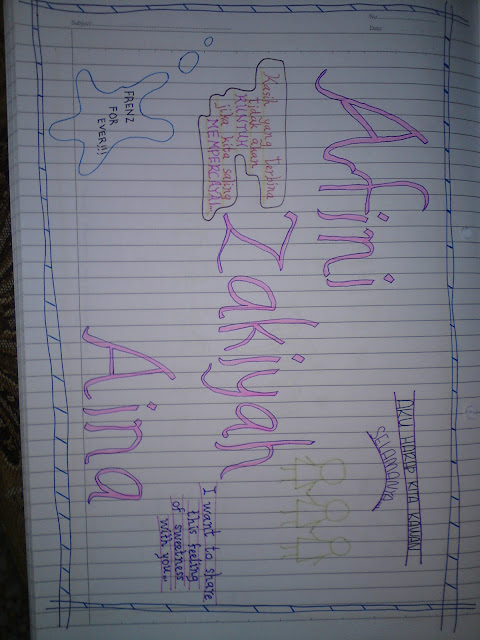 Subject:
No.:
Date:
AKU HARAP KITA KAWAN
SELAMANYA
Afini
Kasih yang terbina
tidak akan
RUNTUH
jika kita saling
MEMPERCAYAI...
Zakiyah
I want to share
this feeling
of sweetness
with you...
Aina
FRENZ
FOR
EVER!!!